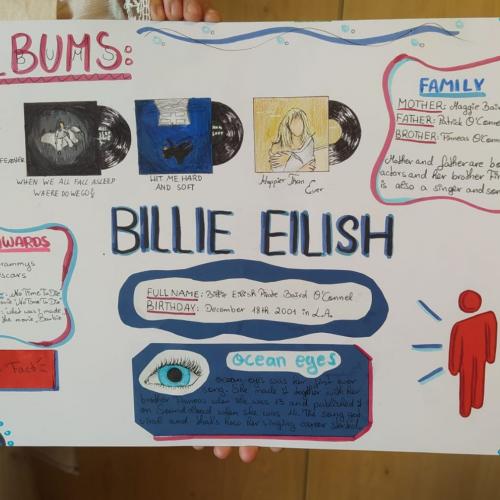 BUMS:
WHEN WE ALL FALL ASLEEP
WHERE DO WE GO?
HIT ME HARD
AND SOFT
Happier Than
Ever
FAMILY
MOTHER: Maggie Bair
FATHER: Patrick O'Connel
BROTHER: Finneas O'Conn
Mother and father are bo
actors and her brother Fin
is also a singer and son
BILLIE EILISH
WARDS
rammys
scars
No Time To Die
movie "No Time To Die"
what was I made
the movie Barbie
FULL NAME: Billie Eilish Pirate Baird O'Connel
BIRTHDAY: December 18th 2001 in L.A.
Fact:
ocean eyes
ocean eyes was her first ever
song. She made it together with her
brother Finneas when she was 13 and published it
on Soundcloud when she was 14. The song got
viral and that's how her singing career started